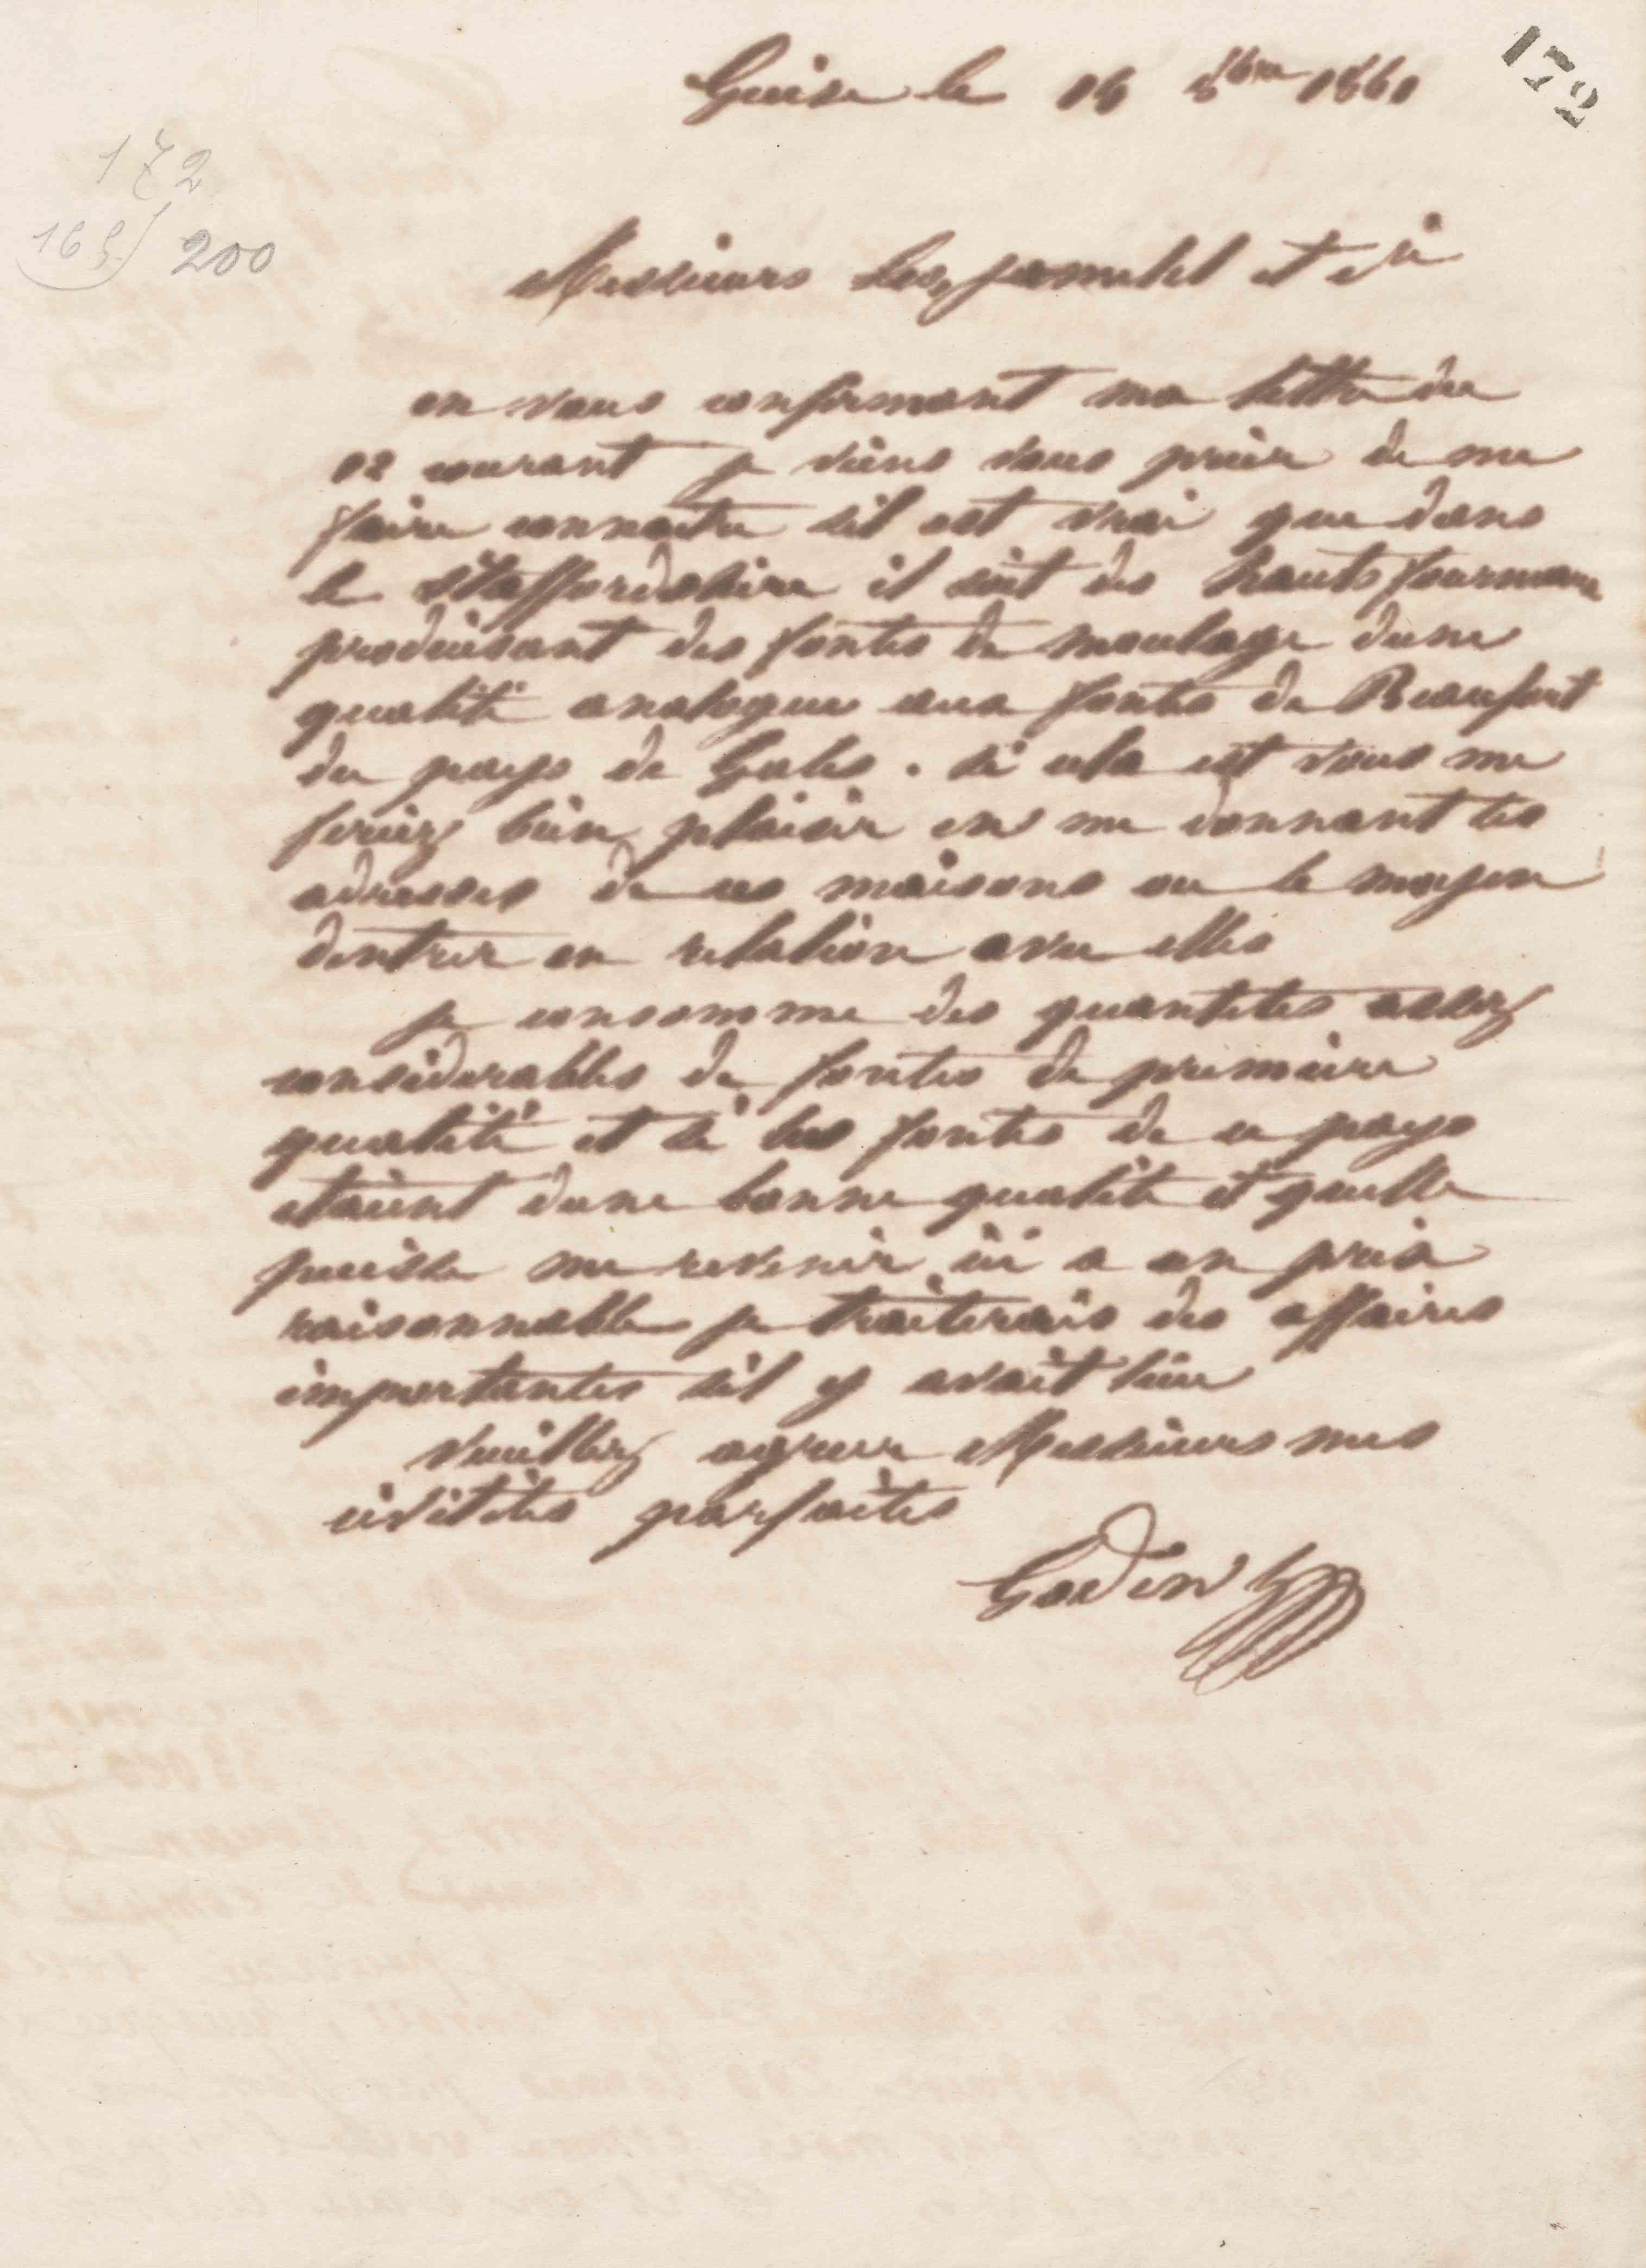 172
Guise le 16 8bre 1860
172
165 / 200
Messieurs et Cie
en vous confirmant ma lettre du
12 courant je viens vous prier de me
faire connaitre sil est vrai que dans
le Staffordshire il soit des hauts fourneaux
produisant des fontes de moulage dune
qualité analogue aux fontes de Beaufort
du pays de Gales. si cela est vous me
feriez bien plaisir en me donnant les
adresses de ces maisons ou le moyen
dentrer en relation avec elles
je consomme des quantites assez
considerables de fontes de première
qualité et si les fontes de ce pays
etaient dune bonne qualité et quelle
puisse me revenir ici a un prix
raisonnable je traiterais des affaires
importantes sil y avait lieu
Veuillez agreer Messieurs mes
civilités parfaites
Godin